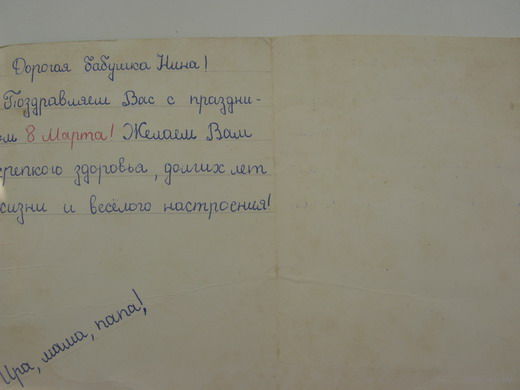 Дорогая бабушка Нина!
Поздравляем Вас с праздни-
ом 8 Марта! Желаем Вам
крепкого здоровья, долгих лет
жизни и весёлого настроения!
Ира, мама, папа!